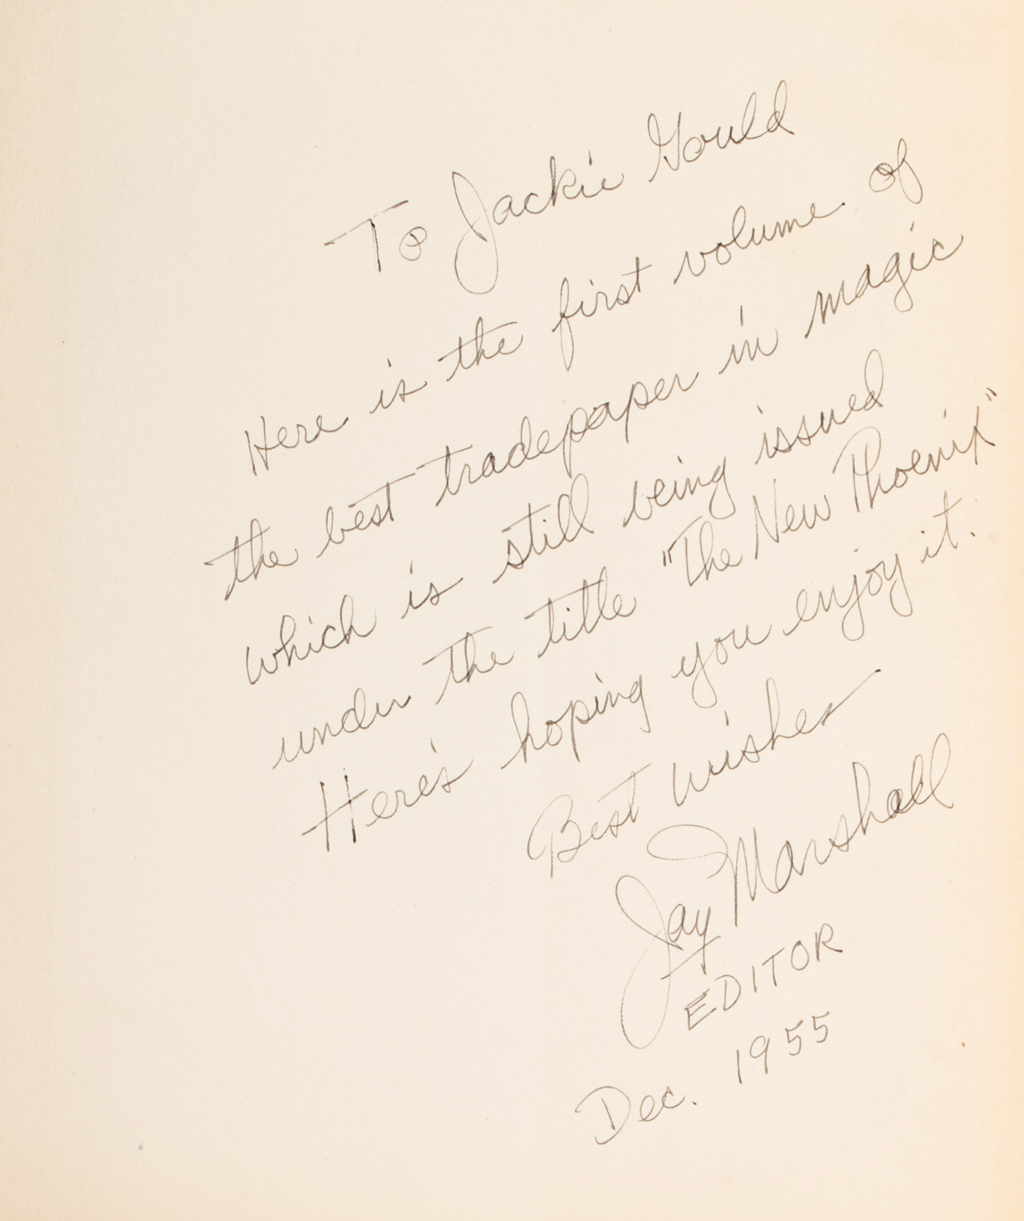 To Jackie Gould
Here is the first volume of
the best tradepaper in magic
which is still being issued
under the title "The New Phoenix"
Here's hoping you enjoy it.
Best wishes
Jay Marshall
EDITOR
Dec. 1955